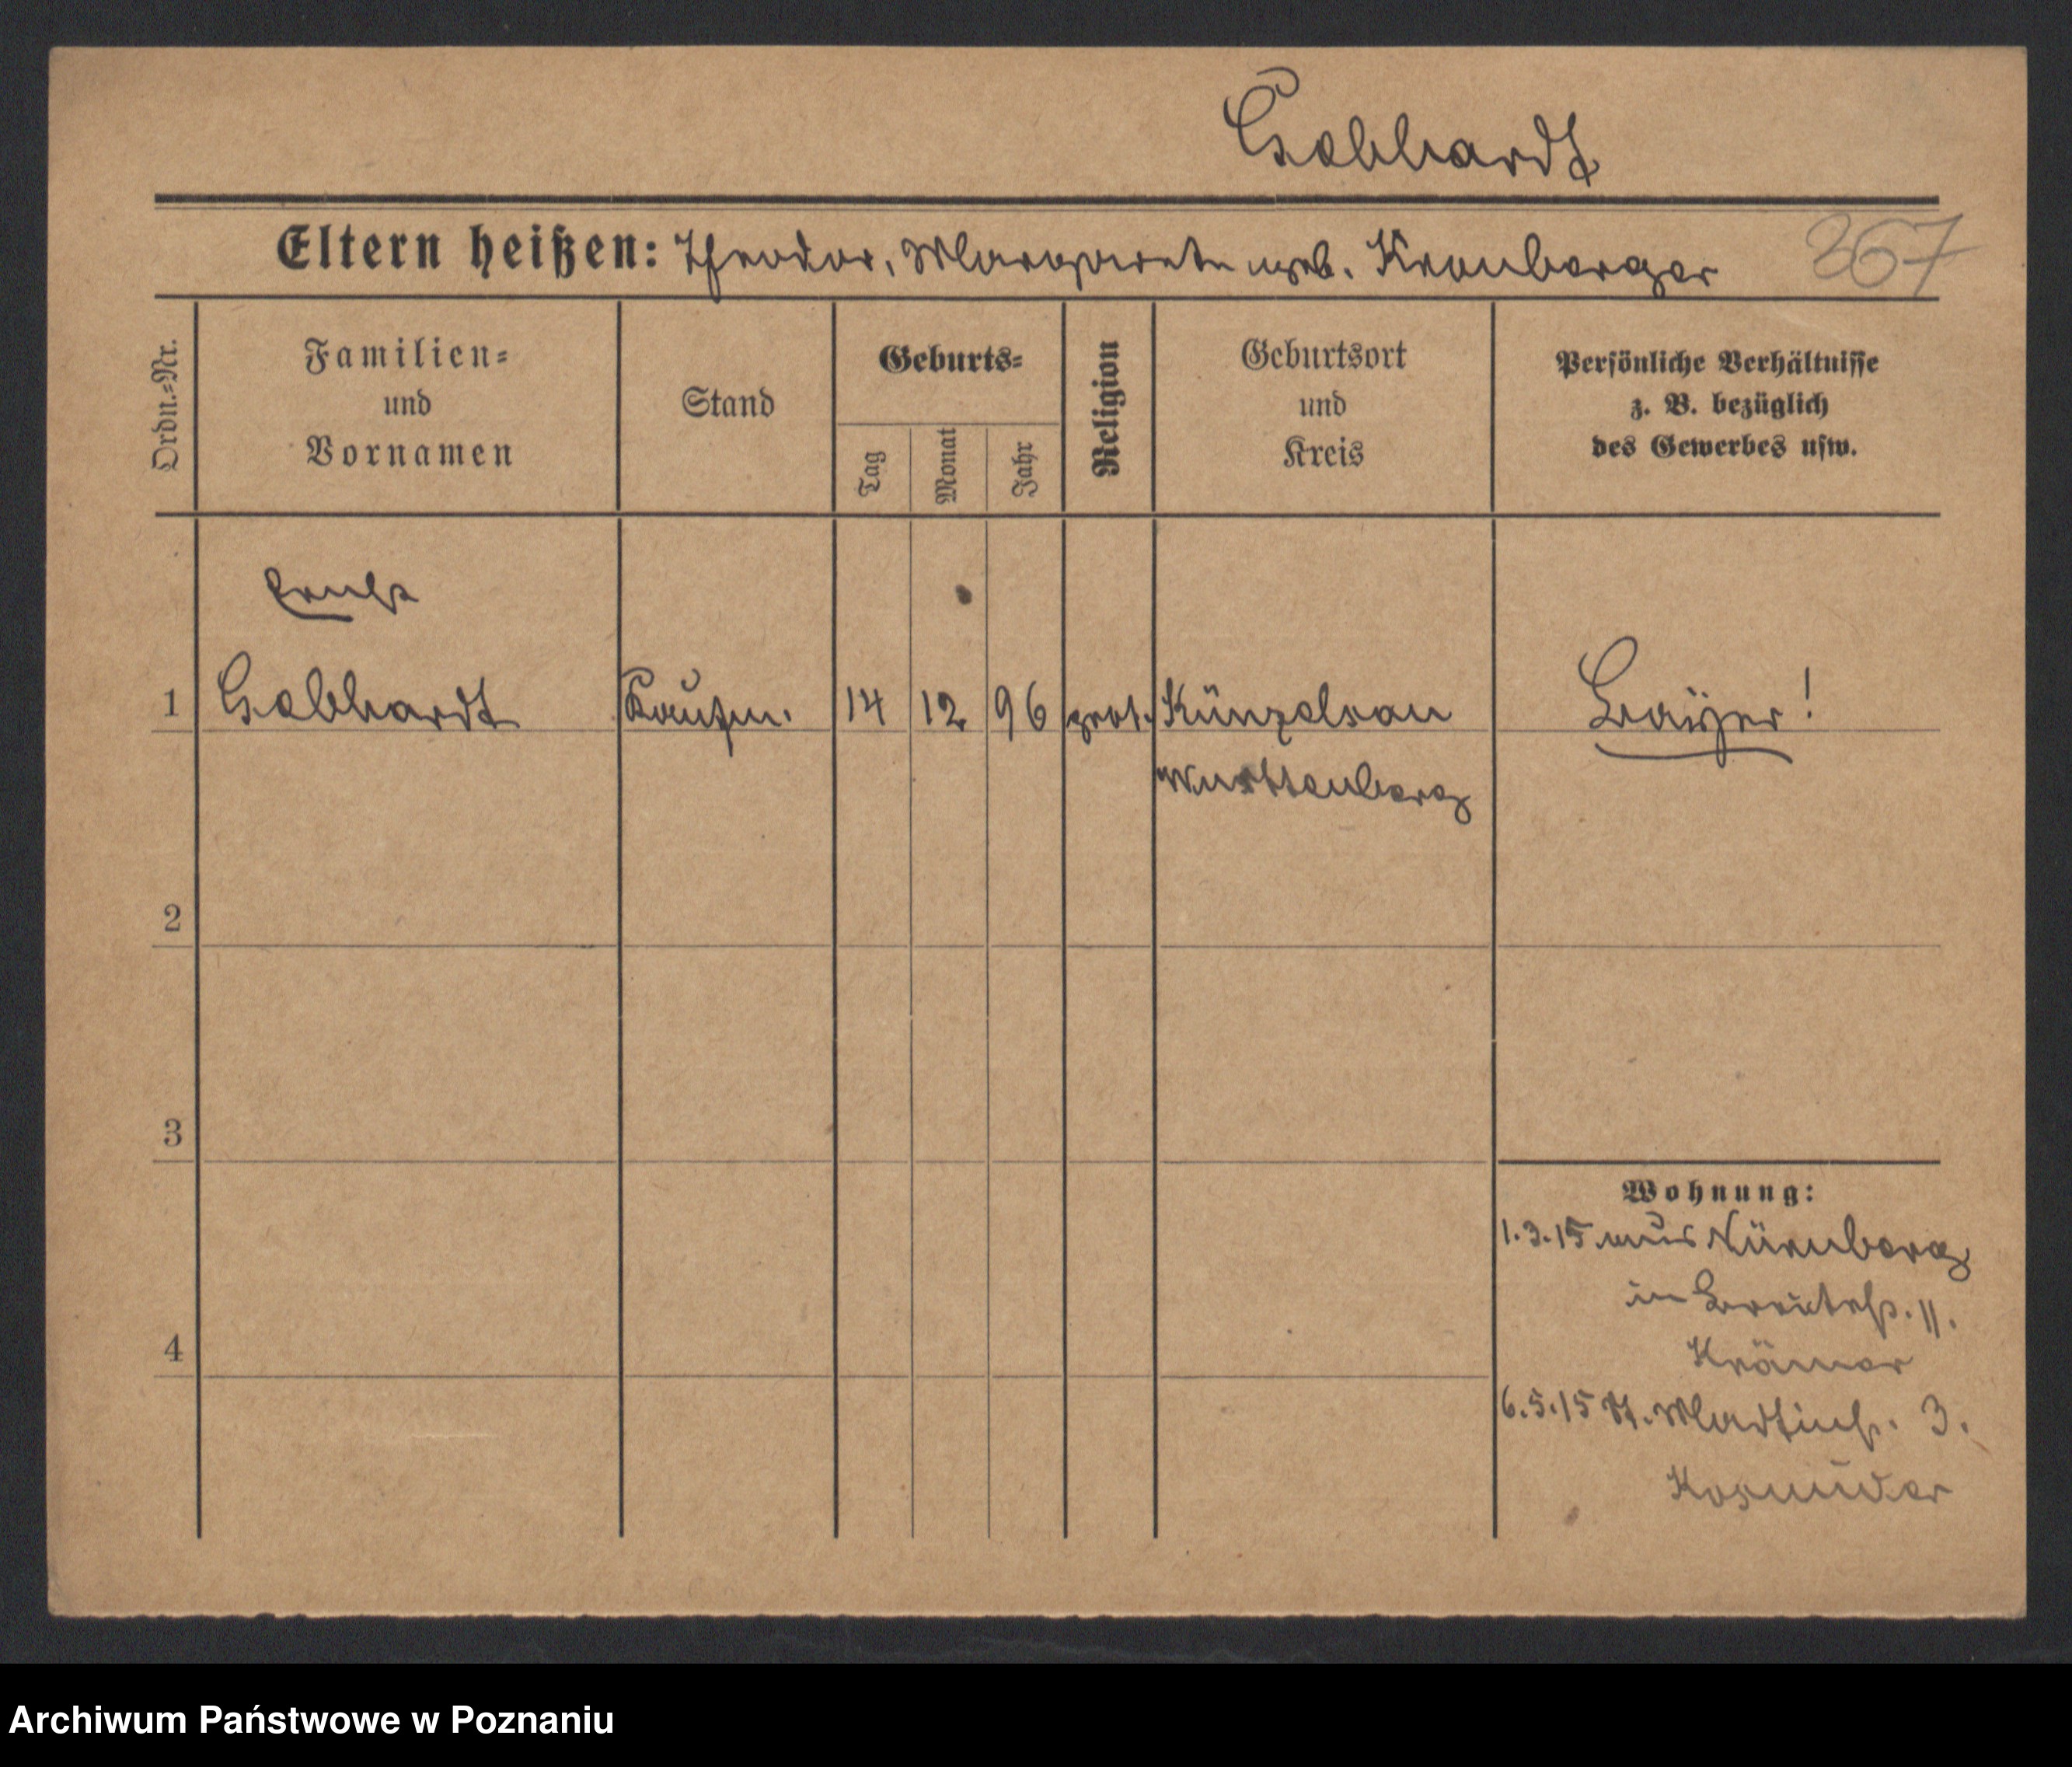 Gebhardt
Eltern heißen: Theodor, Margarete geb. Kronberger
367
Ordn.-Nr.
Familien-
und
Vornamen
Stand
Geburts-
Tag
Monat
Jahr
Religion
Geburtsort
und
Kreis
Persönliche Verhältnisse
z. B. bezüglich
des Gewerbes usw.
Ernst
1 Gebhardt Kaufm. 14 12 96 prot. Künzelsau Bayer!
Württenberg
2
3
4
Wohnung:
1.3.15 aus Nürnberg
in Breitestr. 11.
Krämer
6.5.15 St. Martinstr. 3.
Archiwum Państwowe w Poznaniu